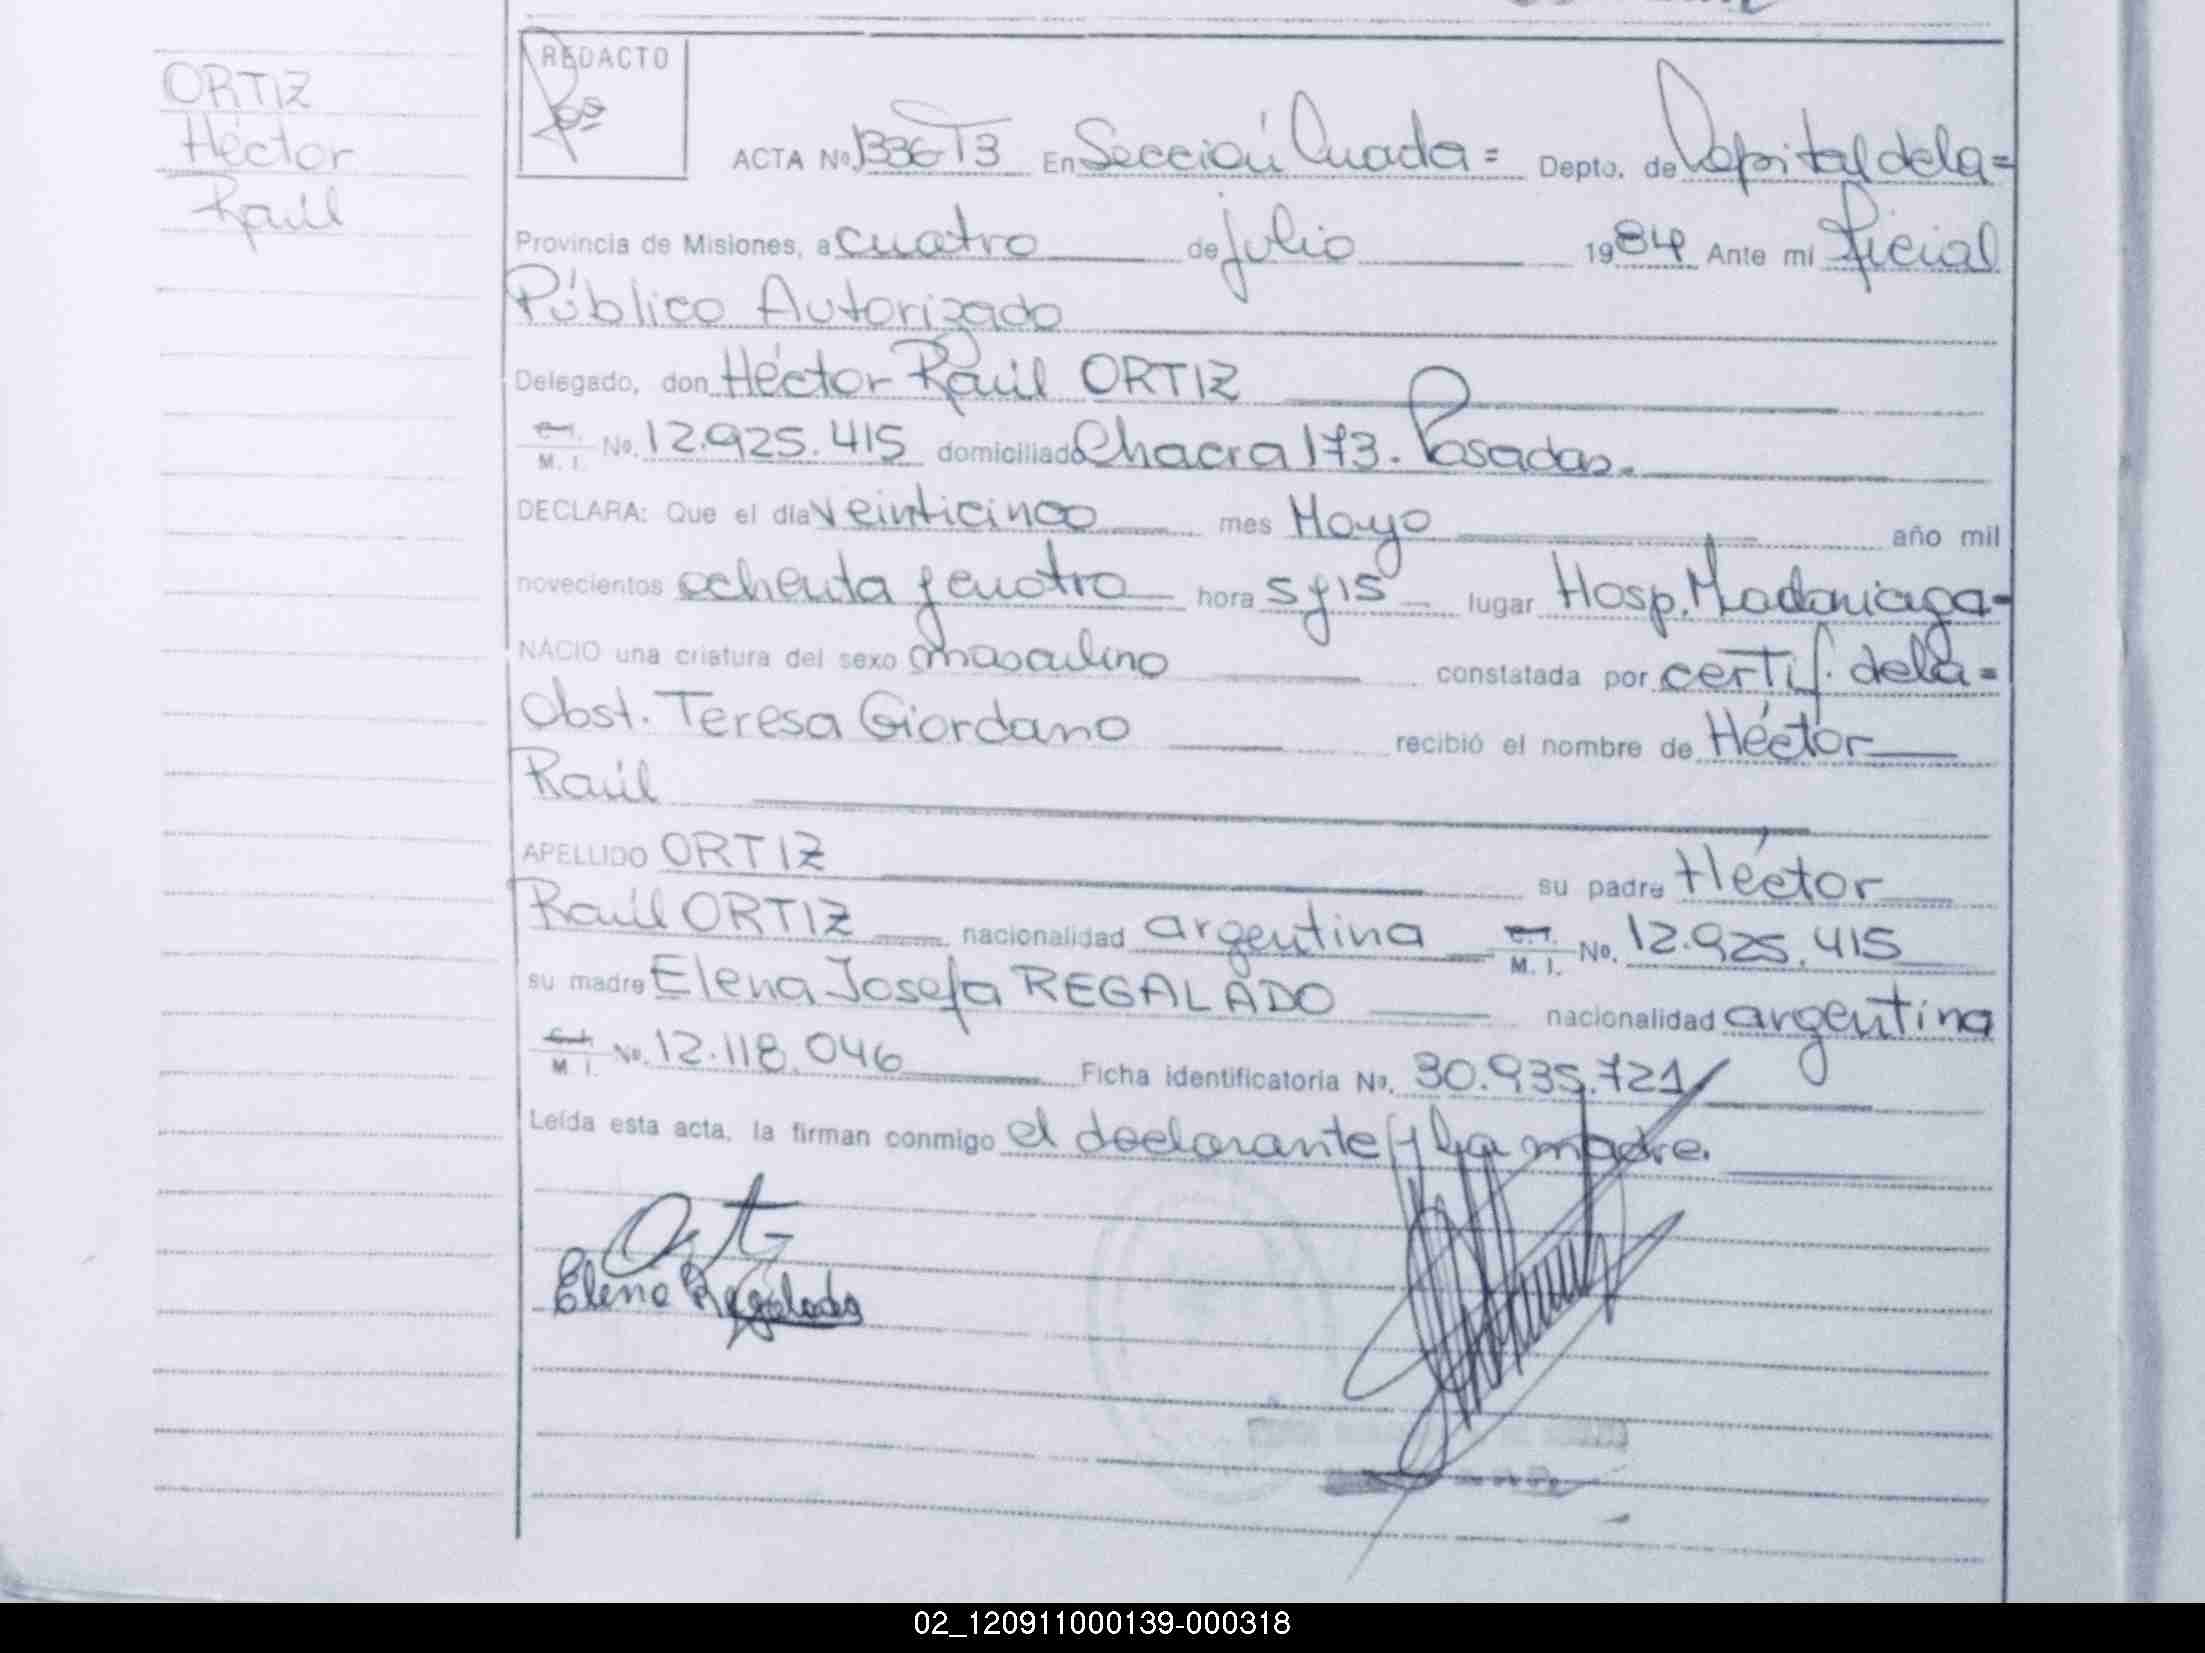 ORTIZ
Héctor
Raúl
REDACTO
ACTA No. 1336 T3 En Sección Cuada = Depto. de Capital de la =
Provincia de Misiones, a cuatro de julio 1984 Ante mi Oficial
Público Autorizado
Delegado, don Héctor Raúl ORTIZ
C.I. M. I. No. 12.925.415 domiciliado Chacra 173. Posadas.
DECLARA: Que el día veinticinco mes Mayo año mil
novecientos ochenta y cuatro hora 5 y 15 lugar Hosp. Madariaga-
NACIO una criatura del sexo masculino constatada por certif. de la =
Obst. Teresa Giordano recibió el nombre de Héctor
Raúl
APELLIDO ORTIZ su padre Héctor
Raúl ORTIZ nacionalidad argentina C.I. M. I. No. 12.925.415
su madre Elena Josefa REGALADO nacionalidad argentina
C.I. M. I. No. 12.118.046 Ficha identificatoria No. 30.935.721
Leída esta acta, la firman conmigo el declarante y la madre.
Elena Regalado
02_120911000139-000318